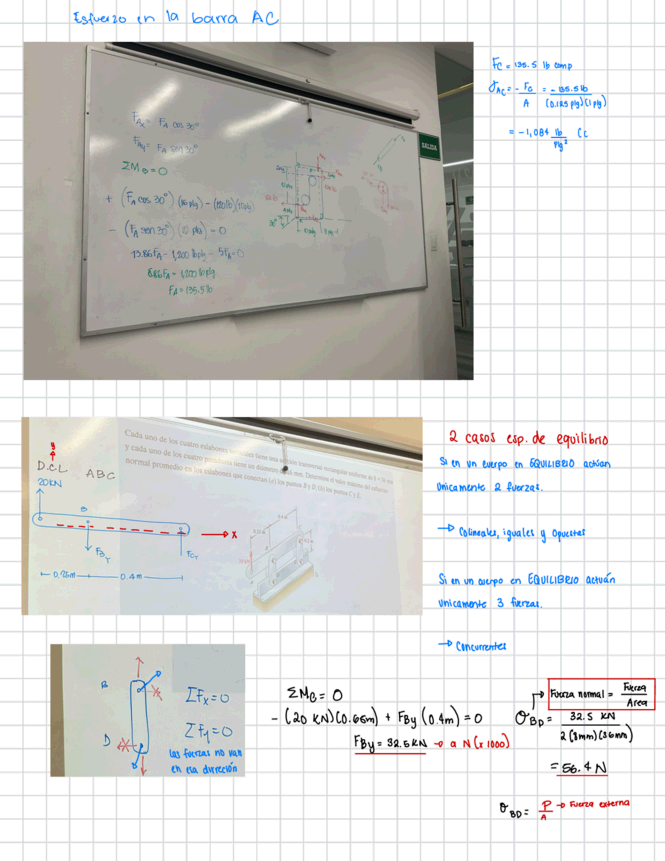 Esfuerzo en la barra AC
F_Ax = F_A cos 30°
F_Ay = F_A sen 30°
ΣM_B = 0
+ (F_A cos 30°) (16 plg) - (100 lb)(12 plg)
- (F_A sen 30°) (10 plg) = 0
13.86F_A - 1,200 lb·plg - 5F_A = 0
8.86F_A = 1,200 lb·plg
F_A = 135.5 lb
SALIDA
F_C = 135.5 lb comp
σ_AC = - F_C / A = - 135.5 lb / (0.125 plg)(1 plg)
= -1,084 lb / plg²
Cada uno de los cuatro eslabones
tiene una sección transversal rectangular uniforme de 8 × 36 mm
y cada uno de los cuatro
tiene un diámetro de 16 mm. Determine el valor máximo del esfuerzo
normal promedio en los eslabones que conectan (a) los puntos B y D, (b) los puntos C y E.
y
D.C.L
ABC
20KN
B
x
F_By
F_Cy
0.25m
0.4m
2 casos esp. de equilibrio
Si en un cuerpo en EQUILIBRIO actúan
únicamente 2 fuerzas.
→ Colineales, iguales y opuestas
Si en un cuerpo en EQUILIBRIO actúan
únicamente 3 fuerzas.
→ Concurrentes
B
D
ΣFx = 0
ΣFy = 0
las fuerzas no van
en esa dirección
ΣM_C = 0
- (20 KN)(0.65m) + F_By (0.4m) = 0
F_By = 32.5KN → a N (x 1000)
Fuerza normal = Fuerza / Area
σ_BD = 32.5 KN / 2(8mm)(36mm)
= 56.4 N
σ_BD = P / A → Fuerza externa